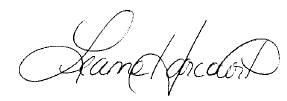 Leanne Harcourt